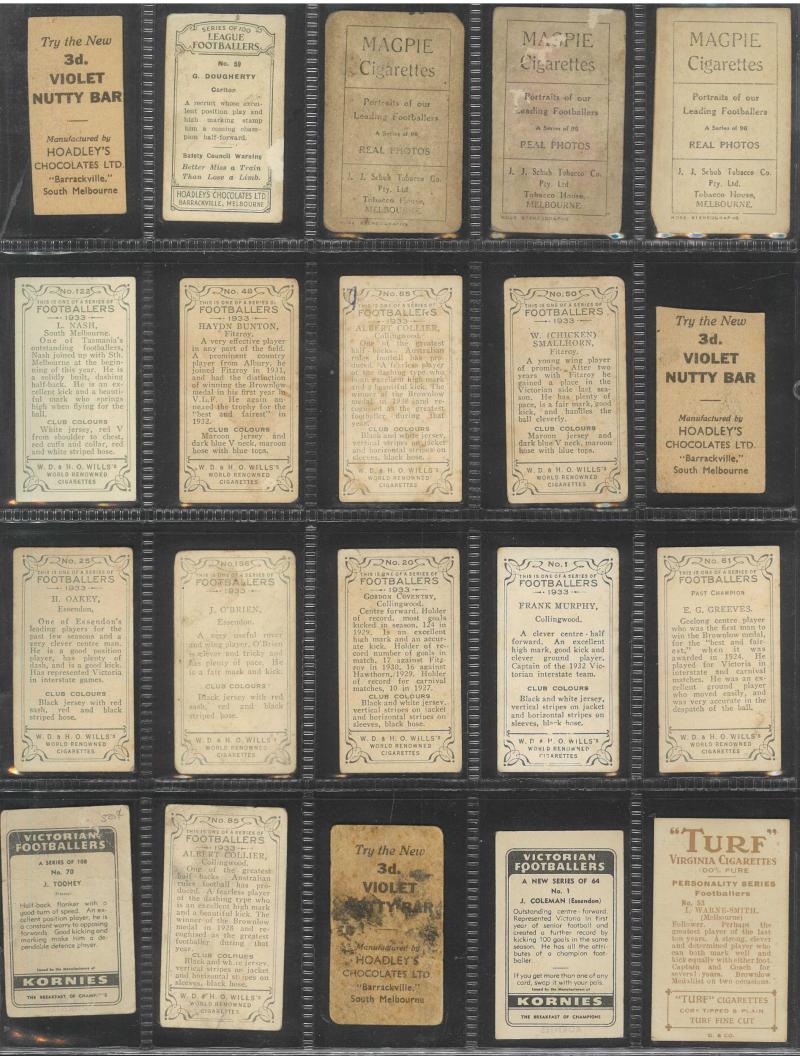 Try the New
3d.
VIOLET
NUTTY BAR
Manufactured by
HOADLEY'S
CHOCOLATES LTD.
"Barrackville,"
South Melbourne
SERIES OF 100
LEAGUE
FOOTBALLERS
No. 59
G. DOUGHERTY
Carlton
A recruit whose excel-
lent position play and
high marking stamp
him a coming cham-
pion half-forward.
Safety Council Warning
Better Miss a Train
Than Lose a Limb.
HOADLEY'S CHOCOLATES LTD
BARRACKVILLE, MELBOURNE
MAGPIE
Cigarettes
Portraits of our
Leading Footballers
A Series of 96
REAL PHOTOS
J. J. Schuh Tobacco Co.
Pty. Ltd.
Tobacco House,
MELBOURNE.
MAGPIE
Cigarettes
Portraits of our
Leading Footballers
A Series of 96
REAL PHOTOS
J. J. Schuh Tobacco Co.
Pty. Ltd.
Tobacco House,
MELBOURNE.
MAGPIE
Cigarettes
Portraits of our
Leading Footballers
A Series of 96
REAL PHOTOS
J. J. Schuh Tobacco Co.
Pty. Ltd.
Tobacco House,
MELBOURNE.
No. 122
THIS IS ONE OF A SERIES OF
FOOTBALLERS
1933
L. NASH,
South Melbourne.
One of Tasmania's
outstanding footballers,
Nash joined up with Sth.
Melbourne at the begin-
ning of this year. He is
a solidly built, dashing
half-back. He is an ex-
cellent kick and a beauti-
ful mark who springs
high when flying for the
ball.
CLUB COLOURS
White jersey, red V
from shoulder to chest,
red cuffs and collar, red
and white striped hose.
W. D. & H. O. WILLS'S
WORLD RENOWNED
CIGARETTES
No. 48
THIS IS ONE OF A SERIES OF
FOOTBALLERS
1933
HAYDN BUNTON,
Fitzroy.
A very effective player
in any part of the field.
A prominent country
player from Albury, he
joined Fitzroy in 1931,
and had the distinction
of winning the Brownlow
medal in his first year in
V.L.F. He again an-
nexed the trophy for the
"best and fairest" in
1932.
CLUB COLOURS
Maroon jersey and
dark blue V neck, maroon
hose with blue tops.
W. D. & H. O. WILLS'S
WORLD RENOWNED
CIGARETTES
9
No. 85
THIS IS ONE OF A SERIES OF
FOOTBALLERS
1933
ALBERT COLLIER,
Collingwood.
One of the greatest
half-backs Australian
rules football has pro-
duced. A fearless player
of the dashing type who
is an excellent high mark
and a beautiful kick. The
winner of the Brownlow
medal in 1928 and re-
cognised as the greatest
footballer during that
year.
CLUB COLOURS
Black and white jersey,
vertical stripes on jacket
and horizontal stripes on
sleeves, black hose.
W. D. & H. O. WILLS'S
WORLD RENOWNED
CIGARETTES
No. 50
THIS IS ONE OF A SERIES OF
FOOTBALLERS
1933
W. (CHICKEN)
SMALLHORN,
Fitzroy.
A young wing player
of promise. After two
years with Fitzroy he
gained a place in the
Victorian side last sea-
son. He has plenty of
pace, is a fair mark, good
kick, and handles the
ball cleverly.
CLUB COLOURS
Maroon jersey and
dark blue V neck, maroon
hose with blue tops.
W. D. & H. O. WILLS'S
WORLD RENOWNED
CIGARETTES
Try the New
3d.
VIOLET
NUTTY BAR
Manufactured by
HOADLEY'S
CHOCOLATES LTD.
"Barrackville,"
South Melbourne
No. 25
THIS IS ONE OF A SERIES OF
FOOTBALLERS
1933
H. OAKEY,
Essendon.
One of Essendon's
leading players for the
past few seasons and a
very clever centre man.
He is a good position
player, has plenty of
dash, and is a good kick.
Has represented Victoria
in interstate games.
CLUB COLOURS
Black jersey with red
sash, red and black
striped hose.
W. D. & H. O. WILLS'S
WORLD RENOWNED
CIGARETTES
No. 156
THIS IS ONE OF A SERIES OF
FOOTBALLERS
1933
J. O'BRIEN,
Essendon.
A very useful rover
and wing player, O'Brien
is clever and tricky and
has plenty of pace. He
is a fair mark and kick.
CLUB COLOURS
Black jersey with red
sash, red and black
striped hose.
W. D. & H. O. WILLS'S
WORLD RENOWNED
CIGARETTES
No. 20
THIS IS ONE OF A SERIES OF
FOOTBALLERS
1933
GORDON COVENTRY,
Collingwood.
Centre forward. Holder
of record, most goals
kicked in season, 124 in
1929. Is an excellent
high mark and an accur-
ate kick. Holder of re-
cord number of goals in
match, 17 against Fitz-
roy in 1930, 16 against
Hawthorn, 1929. Holder
of record for carnival
matches, 10 in 1927.
CLUB COLOURS
Black and white jersey,
vertical stripes on jacket
and horizontal stripes on
sleeves, black hose.
W. D. & H. O. WILLS'S
WORLD RENOWNED
CIGARETTES
No. 1
THIS IS ONE OF A SERIES OF
FOOTBALLERS
1933
FRANK MURPHY,
Collingwood.
A clever centre-half
forward. An excellent
high mark, good kick and
clever ground player.
Captain of the 1932 Vic-
torian interstate team.
CLUB COLOURS
Black and white jersey,
vertical stripes on jacket
and horizontal stripes on
sleeves, black hose.
W. D. & H. O. WILLS'S
WORLD RENOWNED
CIGARETTES
No. 61
THIS IS ONE OF A SERIES OF
FOOTBALLERS
PAST CHAMPION
E. G. GREEVES.
Geelong centre player
who was the first man to
win the Brownlow medal,
for the "best and fair-
est," when it was
awarded in 1924. He
played for Victoria in
interstate and carnival
matches. He was an ex-
cellent ground player
who moved easily, and
was very accurate in the
despatch of the ball.
W. D. & H. O. WILLS'S
WORLD RENOWNED
CIGARETTES
VICTORIAN
FOOTBALLERS
A SERIES OF 108
No. 70
J. TOOHEY
Half-back flanker with a
good turn of speed. An ex-
cellent position player, he is
a constant worry to opposing
forwards. Good kicking and
marking make him a de-
pendable defence player.
Issued by the Manufacturers of
KORNIES
THE BREAKFAST OF CHAMPIONS
No. 85
THIS IS ONE OF A SERIES OF
FOOTBALLERS
1933
ALBERT COLLIER,
Collingwood.
One of the greatest
half-backs Australian
rules football has pro-
duced. A fearless player
of the dashing type who
is an excellent high mark
and a beautiful kick. The
winner of the Brownlow
medal in 1928 and re-
cognised as the greatest
footballer during that
year.
CLUB COLOURS
Black and white jersey,
vertical stripes on jacket
and horizontal stripes on
sleeves, black hose.
W. D. & H. O. WILLS'S
WORLD RENOWNED
CIGARETTES
Try the New
3d.
VIOLET
NUTTY BAR
Manufactured by
HOADLEY'S
CHOCOLATES LTD
"Barrackville,"
South Melbourne
VICTORIAN
FOOTBALLERS
A NEW SERIES OF 64
No. 1
J. COLEMAN (Essendon)
Outstanding centre-forward.
Represented Victoria in first
year of senior football and
created a further record by
kicking 100 goals in the same
season. He has all the attri-
butes of a champion foot-
baller.
If you get more than one of any
card, swap it with your pals.
Issued by the Manufacturers of
KORNIES
THE BREAKFAST OF CHAMPIONS
"TURF"
VIRGINIA CIGARETTES
100% PURE
PERSONALITY SERIES
Footballers
No. 53
I. WARNE-SMITH.
(Melbourne)
Follower. Perhaps the
greatest player of the last
ten years. A strong, clever
and determined player who
can both mark well and
kick equally with either foot.
Captain and Coach for
several years. Brownlow
Medallist on two occasions.
"TURF" CIGARETTES
CORK TIPPED & PLAIN
TURF FINE CUT
G. & CO.